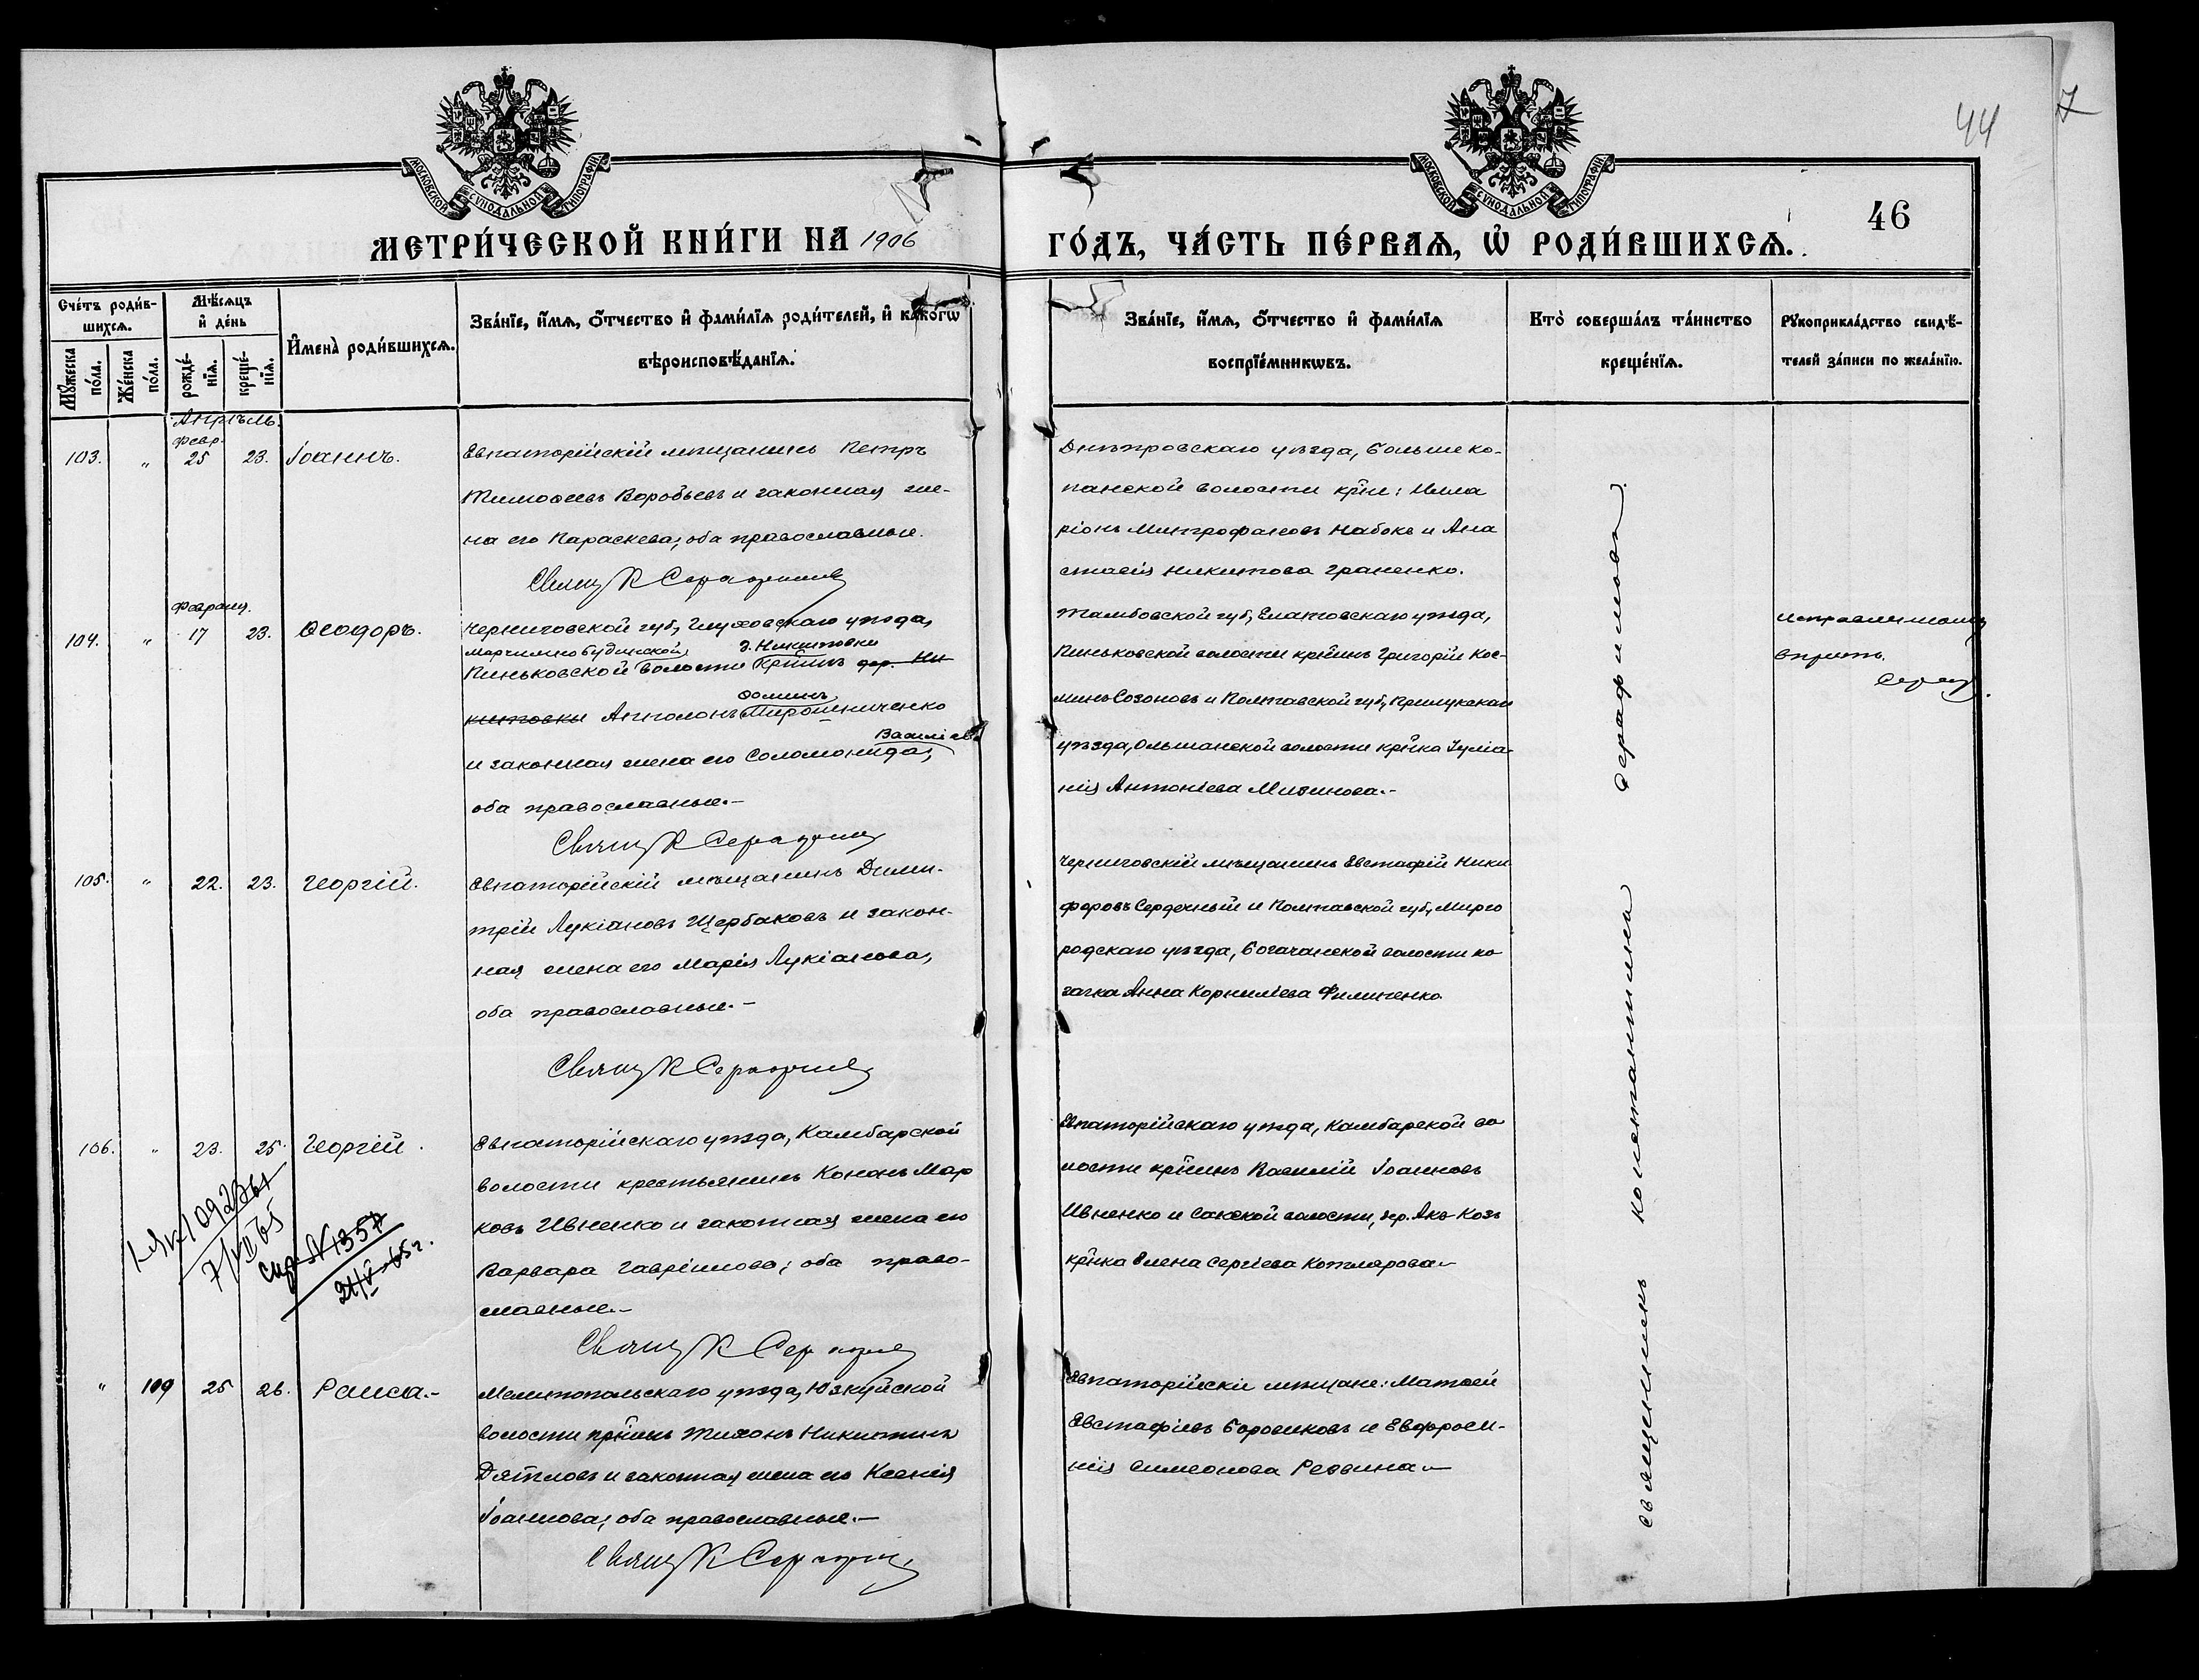 44
7
46
МОСКОВСКОЙ СУНОДАЛЬНОЙ ТИПОГРАФІИ
МОСКОВСКОЙ СУНОДАЛЬНОЙ ТИПОГРАФІИ
МЕТРИ́ЧЕСКОЙ КНИ́ГИ НА 1906
ГО́ДЪ, ЧА́СТЬ ПЕ́РВАЯ, Ѡ҆ РОДИ́ВШИХСЯ.
Сче́тъ роди́в-
шихся.
Мꙋ́жеска по́ла.
Же́нска по́ла.
Мѣ́сяцъ
и҆ де́нь
рожде́-
нїя.
креще́-
нїя.
И҆мена̀ роди́вшихся.
Зва́нїе, и҆́мя, ѻ҆́тчество и҆ фами́лїя роди́телей, и҆ како́гѡ
вѣроисповѣ́данїя.
Зва́нїе, и҆́мя, ѻ҆́тчество и҆ фами́лїя
воспрїе́мникѡвъ.
Кто̀ соверша́лъ та́инство
креще́нїя.
Рꙋкоприкла́дство свидѣ́-
телей за́писи по жела́нїю.
Апрѣль.
февр.
103. " 25 23. Іоаннъ.
Евпаторійскій мѣщанинъ Петръ
Тимоѳеевъ Воробьевъ и законная же-
на его Параскева; оба православные.
Свящ К Серафимов
Днѣпровскаго уѣзда, Больше ко-
панской волости кр̃не: Илла
ріонъ Митрофановъ Набока и Ана
стасія Никитова Граненко.
февраля.
104. " 17 23. Ѳеодоръ.
Черниговской губ, Глуховскаго уѣзда,
Марчихино Будинской, д. Никитовки
Пиньковской волости кр̃нинъ дер. Ни
китовки Апполонъ Ѳоминъ Мирошниченко
Васильев
и законная жена его Соломонида,
оба православные.-
Свящ К Серафим
Тамбовской губ, Елатовскаго уѣзда,
Пиньковской волости кр̃нинъ Григорій Кос-
минъ Созоновъ и Полтавской губ, Прилукскаго
уѣзда, Ольшанской волости кр̃нка Іуліа-
нія Антоніева Мизинова.-
исправленному
вѣрить.
Сераф.
105. " 22. 23. Георгій.
Евпаторійскій мѣщанинъ Дими-
трій Лукіановъ Щербаковъ и закон-
ная жена его Марія Лукіанова,
оба православные.-
Свящ К Серафимов
Черниговскій мѣщанинъ Евстафій Ники
форовъ Сердечный и Полтавской губ, Мирго
родскаго уѣзда, Богачанской волости ко
зачка Анна Корниліева Филипенко.
106. " 23. 25. Георгій.
Евпаторійскаго уѣзда, Камбарской
волости крестьянинъ Кононъ Мар
ковъ Ивненко и законная жена его
Варвара Гавріилова; оба право-
славные.-
Свящ К Серафим
Евпаторійскаго уѣзда, Камбарской во
лости кр̃нинъ Василій Іоанновъ
Ивненко и Сакской волости, дер. Акъ-Козъ
кр̃нка Елена Сергіева Котлярова-
спр. N 1357
21/V-65г.
" 109 25 26. Раиса.-
Мелитопольскаго уѣзда, Юзкуйской
волости кр̃нинъ Тихонъ Никитинъ
Дятловъ и законная жена его Ксенія
Іоаннова; оба православные.-
Свящ К Серафим
Евпаторійскіе мѣщане: Матвей
Евстафіевъ Боровиковъ и Евфроси-
нія Симеонова Реввина-
Священникъ Константинъ Серафимовъ.